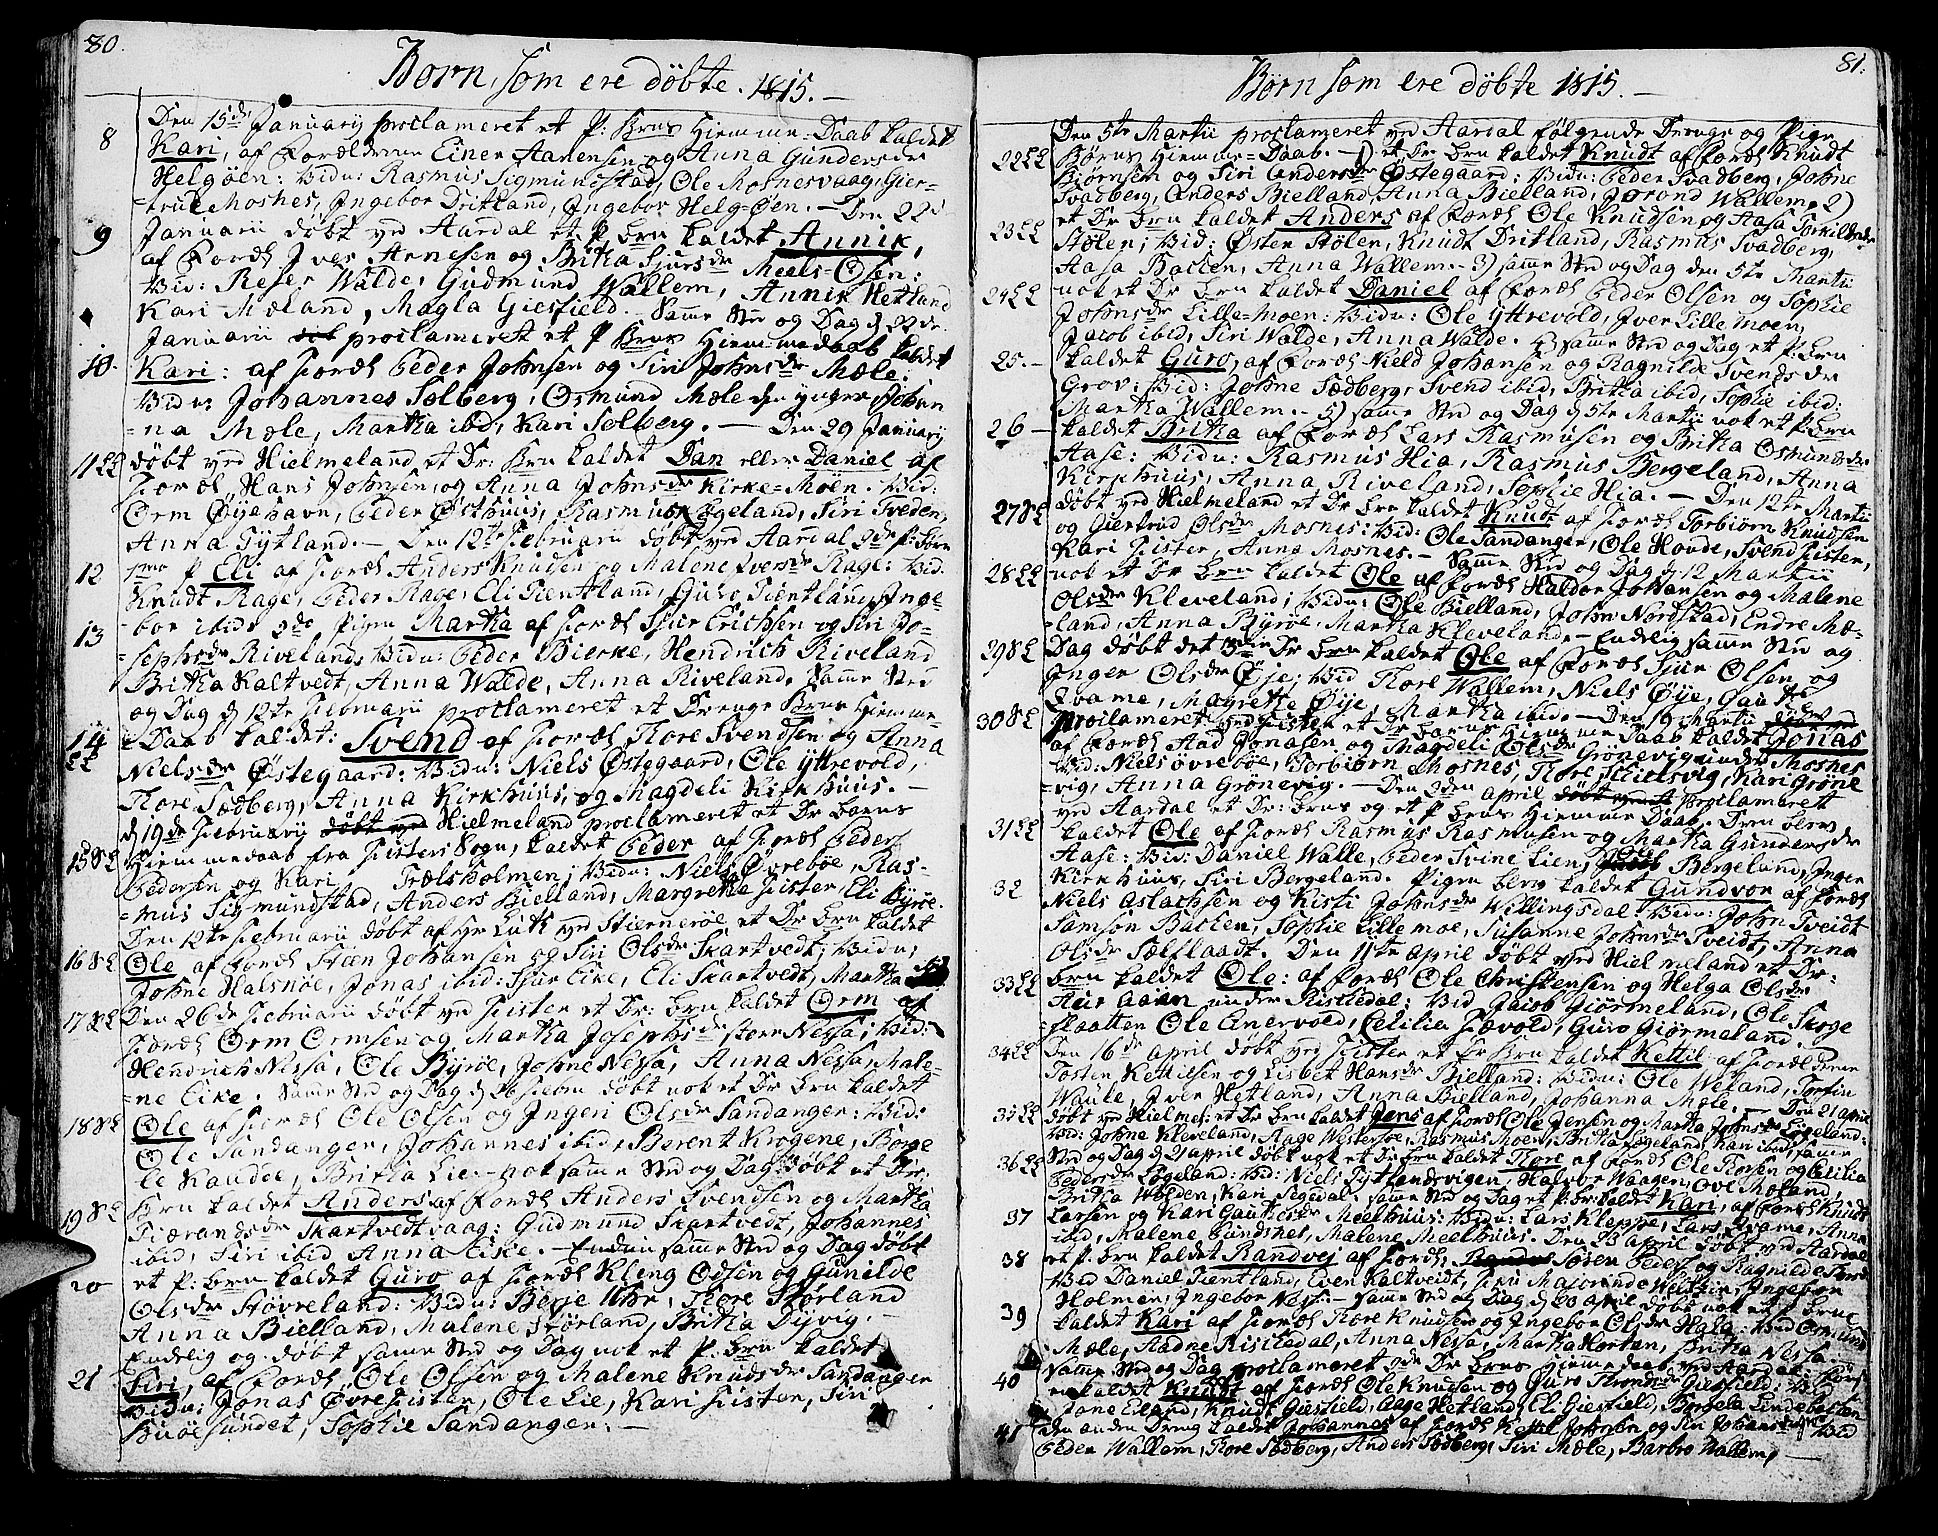 80.
Børn, som ere døbte. 1815.—
Den 15de January proclameret et P: Brns Hiemme-Daab kaldet
8 Kari, af Forældrene Einer Aanensen og Anna Gundersdr
Helgøen: Vidn: Rasmus Sigmundstad, Ole Mosnesvaag, Gier-
=trud Mosnes, Ingebor Dritland, Ingebor Helg-Øen.— Den 22d
9 Januarii døbt ved Aardal et P. brn kaldet Annik,
af Foræld Iver Arnesen og Britha Sjursdr Meels-Osen:
Vid: Reier Walde, Gudmund Wallem, Annik Hetland
Kari Mæland, Magla Giesfield. Samme Sted og Dag d 22de
Januarii proclameret et P Brns Hiemmedaab kaldet
10. Kari: af Foræld Peder Johnsen og Siri Johnsdr Mæle:
Vidn: Johannes Solberg, Osmund Mæle den yngre, Johan
=na Mæle, Martha ibid, Kari Solberg.— Den 29 January
11 døbt ved Hielmeland et Dr: Brn kaldet Dan eller Daniel af
Foræld Hans Johnsen, og Anna Johnsdr Kirke=Moen. Vid:
Orm Øyehavn, Peder Østhuus, Rasmus Fogeland, Siri Sveden,
Anna Tytland.— Den 12te Februarii døbt ved Aardal 2de P: Børn
12 1mo P Eli af Foræld Anders Knudsen og Malene Iversdr Rage: Vid:
Knudt Rage, Peder Rage, Eli Tientland, Guro Tientland, Inge-
bor ibid: 2do Pigen Martha af Foræld Sjur Erichsen og Siri Jo-
13 =sephsdr Riveland: Vidn: Peder Bierke, Hendrich Riveland,
Britha Kaltvedt, Anna Walde, Anna Riveland. Samme Sted
og Dag d 12te Februarii proclameret et Drenge Brns Hiemme-
14 =Daab kaldet: Svend af Foræld Thore Svendsen og Anna
Nielsdr Østegaard: Vidn: Niels Østegaard, Ole Yttrevold,
Thore Sædberg, Anna Kirkhuus, og Magdeli Kirkhuus.—
d 19de Februarii døbt ved Hielmeland proclameret et Dr barns
15 Hiemmedaab fra Fisters Sogn, kaldet Peder af Foræld Peder
Pedersen og Kari Trælsholmen; Vidn: Niels Øvrebøe, Ras-
=mus Sigmundstad, Anders Bielland, Margretha Fister, Eli Byrøe.
Den 12te Februarii døbt af Hr Luth ved Stiernerøe et Dr brn kaldet
16 Ole af Foræld Steen Johansen og Siri Olsdr Skartvedt; Vidn:
Johne Halsnøe, Jonas ibid: Sjur Eike, Eli Skartvedt, Martha
17 Den 26de Februarii døbt ved Fister et Dr: brn kaldet Orm af
Foræld Orm Ormsen og Martha Josephsdr store Nessa; Vid:
Hendrich Nessa, Ole Byrøe, Johne Nessa, Anna Nessa, Male-
=ne Eike. Samme Sted og Dag d 26 Februarii døbt nok et Dr brn kaldet
18 Ole af Foræld Ole Olsen og Ingeri Olsdr Sandanger: Vid:
Ole Sandanger, Johannes ibid, Berent Krogene, Børge
le Randøe, Britha Lie.— nok samme Sted og Dag døbt et Dr.
19 Brn kaldet Anders af Foræld Anders Svendsen og Martha
Tiærandsdr Skartvedtvaag: Gudmund Skartvedt, Johannes
ibid, Siri ibid Anna Eike.— Endnu samme Sted og Dag døbt
20 et P: brn kaldet Guro af Foræld Kleng Odsen og Gunilde
Olsdr Støvreland: Vidn: Berje Uhr, Thore Størland
Anna Bielland, Malene Størland, Britha Dyvig.—
Endelig og døbt samme Sted og Dag nok et P: brn kaldet
21 Siri, af Foræld, Ole Olsen og Malene Knudsdr Sandanger
Vidn: Jonas Øvre Fister, Ole Lie, Kari Fister, Siri
Buøesundet, Sophie Sandanger.—
81.
Børn som ere døbte 1815.—
Den 5te Martii proclameret ved Aardal følgende Drenge og Pige
22 Børns Hiemme=Daab.— 1) et Dr brn kaldet Knudt af Foræld Knudt
Biørnsen og Siri Andersdr Østegaard: Vidn: Peder Svadberg, Johne
Svadberg, Anders Bielland, Anna Bielland, Jorond Wallem, 2)
23 et Dr brn kaldet Anders af Foræld Ole Knudsen og Aasa Torkildsdr
Stølen; Vid: Østen Stølen, Knudt Dritland, Rasmus Svadberg,
Aasa Batten, Anna Wallem.— 3) samme Sted og Dag den 5te Martii
24 nok et Dr brn kaldet Daniel af Foræld Peder Olsen og Sophie
Johnsdr Lille-moen: Vidn: Ole Yttrevold, Iver Lillemoen,
Jacob ibid, Siri Walde, Anna Walde. 4) samme Sted og Dag et P: brn
25.— kaldet Guro, af Foræld Nield Johansen og Ragnilde Svendsdr
Grov: Vid: Johne Sædberg, Svend ibid, Britha ibid, Sophie ibid:
Martha Wallem.— 5) samme Sted og Dag d 5te Martii nok et P: brn
26 kaldet Britha af Foræld Lars Rasmusen og Britha Osmundsdr
Aase: Vidn: Rasmus Hia, Rasmus Bergeland, Anna
Kirkhuus, Anna Riveland, Sophie Hia.— Den 12te Martii
27 døbt ved Hielmeland et Dr brn kaldet Knudt af Foræld Torbiørn Knudsen
og Giertrud Olsdr Mosnes: Vid: Ole Sandanger, Ole Hovde, Svend Fister,
Kari Fister, Anna Mosnes.— Samme Sted og Dag d 12 Martii
28 nok et Dr brn kaldet Ole af Foræld Haldor Johansen og Malene
Olsdr Kleveland; Vidn: Ole Bielland, John Nordstad, Endre Mæ-
=land, Anna Byrøe, Martha Kleveland.— Endelig samme Sted og
29 Dag døbt det 3die Dr brn kaldet Ole af Foræld Sjur Olsen og
Inger Olsdr Øje; Vid Thore Wallem, Niels Øje, Gaute
Qvame, Magrethe Øye, Martha ibid.— Den 19 Martii
30 proclameret ved Fister et Dr barns Hiemme Daab kaldet Jonas
af Foræld Aad Jonasen og Magdeli Olsdr Grønevig under Mosnes
Vid: Niels øvrebøe, Torbiørn Mosnes, Thore Hielsvig, Kari Grøne
=vig, Anna Grønevig.— Den 2den april døbt ved A proclameret
ved Aardal et Dr: brns og et P brns Hiemme Daab. Dren blev
31 kaldet Ole af Foræld Rasmus Rasmusen og Martha Gundersdr
Aase: Vid: Daniel Walle, Peder Svine Lien, Ole Bergeland, Inger
Kirkhuus, Siri Bergeland. Pigen blev kaldet Gundvor af Foræld
32 Niels Aslachsen og Kisti Johnsdr Willingsdal: Vidn: John Tveidt
Samson Batten, Sophie Lille moe, Susanne Johnsdr Tveidt, Anna
Olsdr Sælflaadt. Den 11te April døbt ved Hielmeland et Dr.
33 brn kaldet Ole: af Foræld Ole Christensen og Helga Olsdr
Aur Aaen under Ristedal: Vid Jacob Giørmeland, Ole Skoge
=flaatten Ole Anervold, Cecilia Fævold, Guro Giørmeland.
34 Den 16de April døbt ved Fister et Dr Brn kaldet Kettil af Forældrene
Tosten Kettilsen og Lisbet Hansdr Bielland: Vidn: Ole Weland, Torfin
Waule, Iver Hetland, Anna Bielland, Johanna Mæle.— Den 21 april
35 døbt ved Hielmel: et Dr brn kaldet Jens af Foræld Ole Jensen og Martha Johnsdr Eigeland:
Vid: Johne Kleveland, Aage Westersøe, Rasmus Moen, Britha Fogeland, Kari ibid. samme
36 Sted og Dag d 21 april døbt nok et Dr brn kaldet Thore af Foræld Ole Thorsen og Cecilia
Pedersdr Fogeland: Vid: Niels Tytlandsvigen, Halvor Waagen, Ove Mæland,
Britha Wolden, Kari Segedal. samme Sted og Dag et P: br: kaldet Kari, af Foræld Knudt
37 Larsen og Kari Gautesdr Meelhuus: Vidn: Lars Kleppe, Lars Qvame, Anna
ibid, Malene Gundsnet, Malene Meelhuus. Den 23 April døbt ved Aardal
38 et P: brn kaldet Randvej af Foræld Søren Peders og Ragnilde
Vid Daniel Tientland, Even Kaltveidt,
Holmen, Ingebor Nessa.— samme Sted og Dag d 23 April døbt nok et P brn
39 kaldet Kari af Foræld Thore Knudsen og Ingebor Olsdr Hala: Vid Osmund
Mæle, Aadne Ristedal, Anna Nessa, Martha Horten, Britha Nessa.
samme Sted og Dag proclameret 2de Dr brns Hiemme daab, ved Aardal.
40 kaldet Knudt af Foræld Ole Knudsen og Guro Throndsdr Giesfield; Vid
Tone Eiland, Knudt Giesfield, Aage Hetland, Eli Giesfield, Borgela Lindebotten
41 den anden Dreng kaldet Johannes af Foræld Kettel Johnsen og Siri Johans Vid
Peder Wallem, Thore Sædberg, Anders Sædberg, Siri Mæle, Barbro Wallem,—